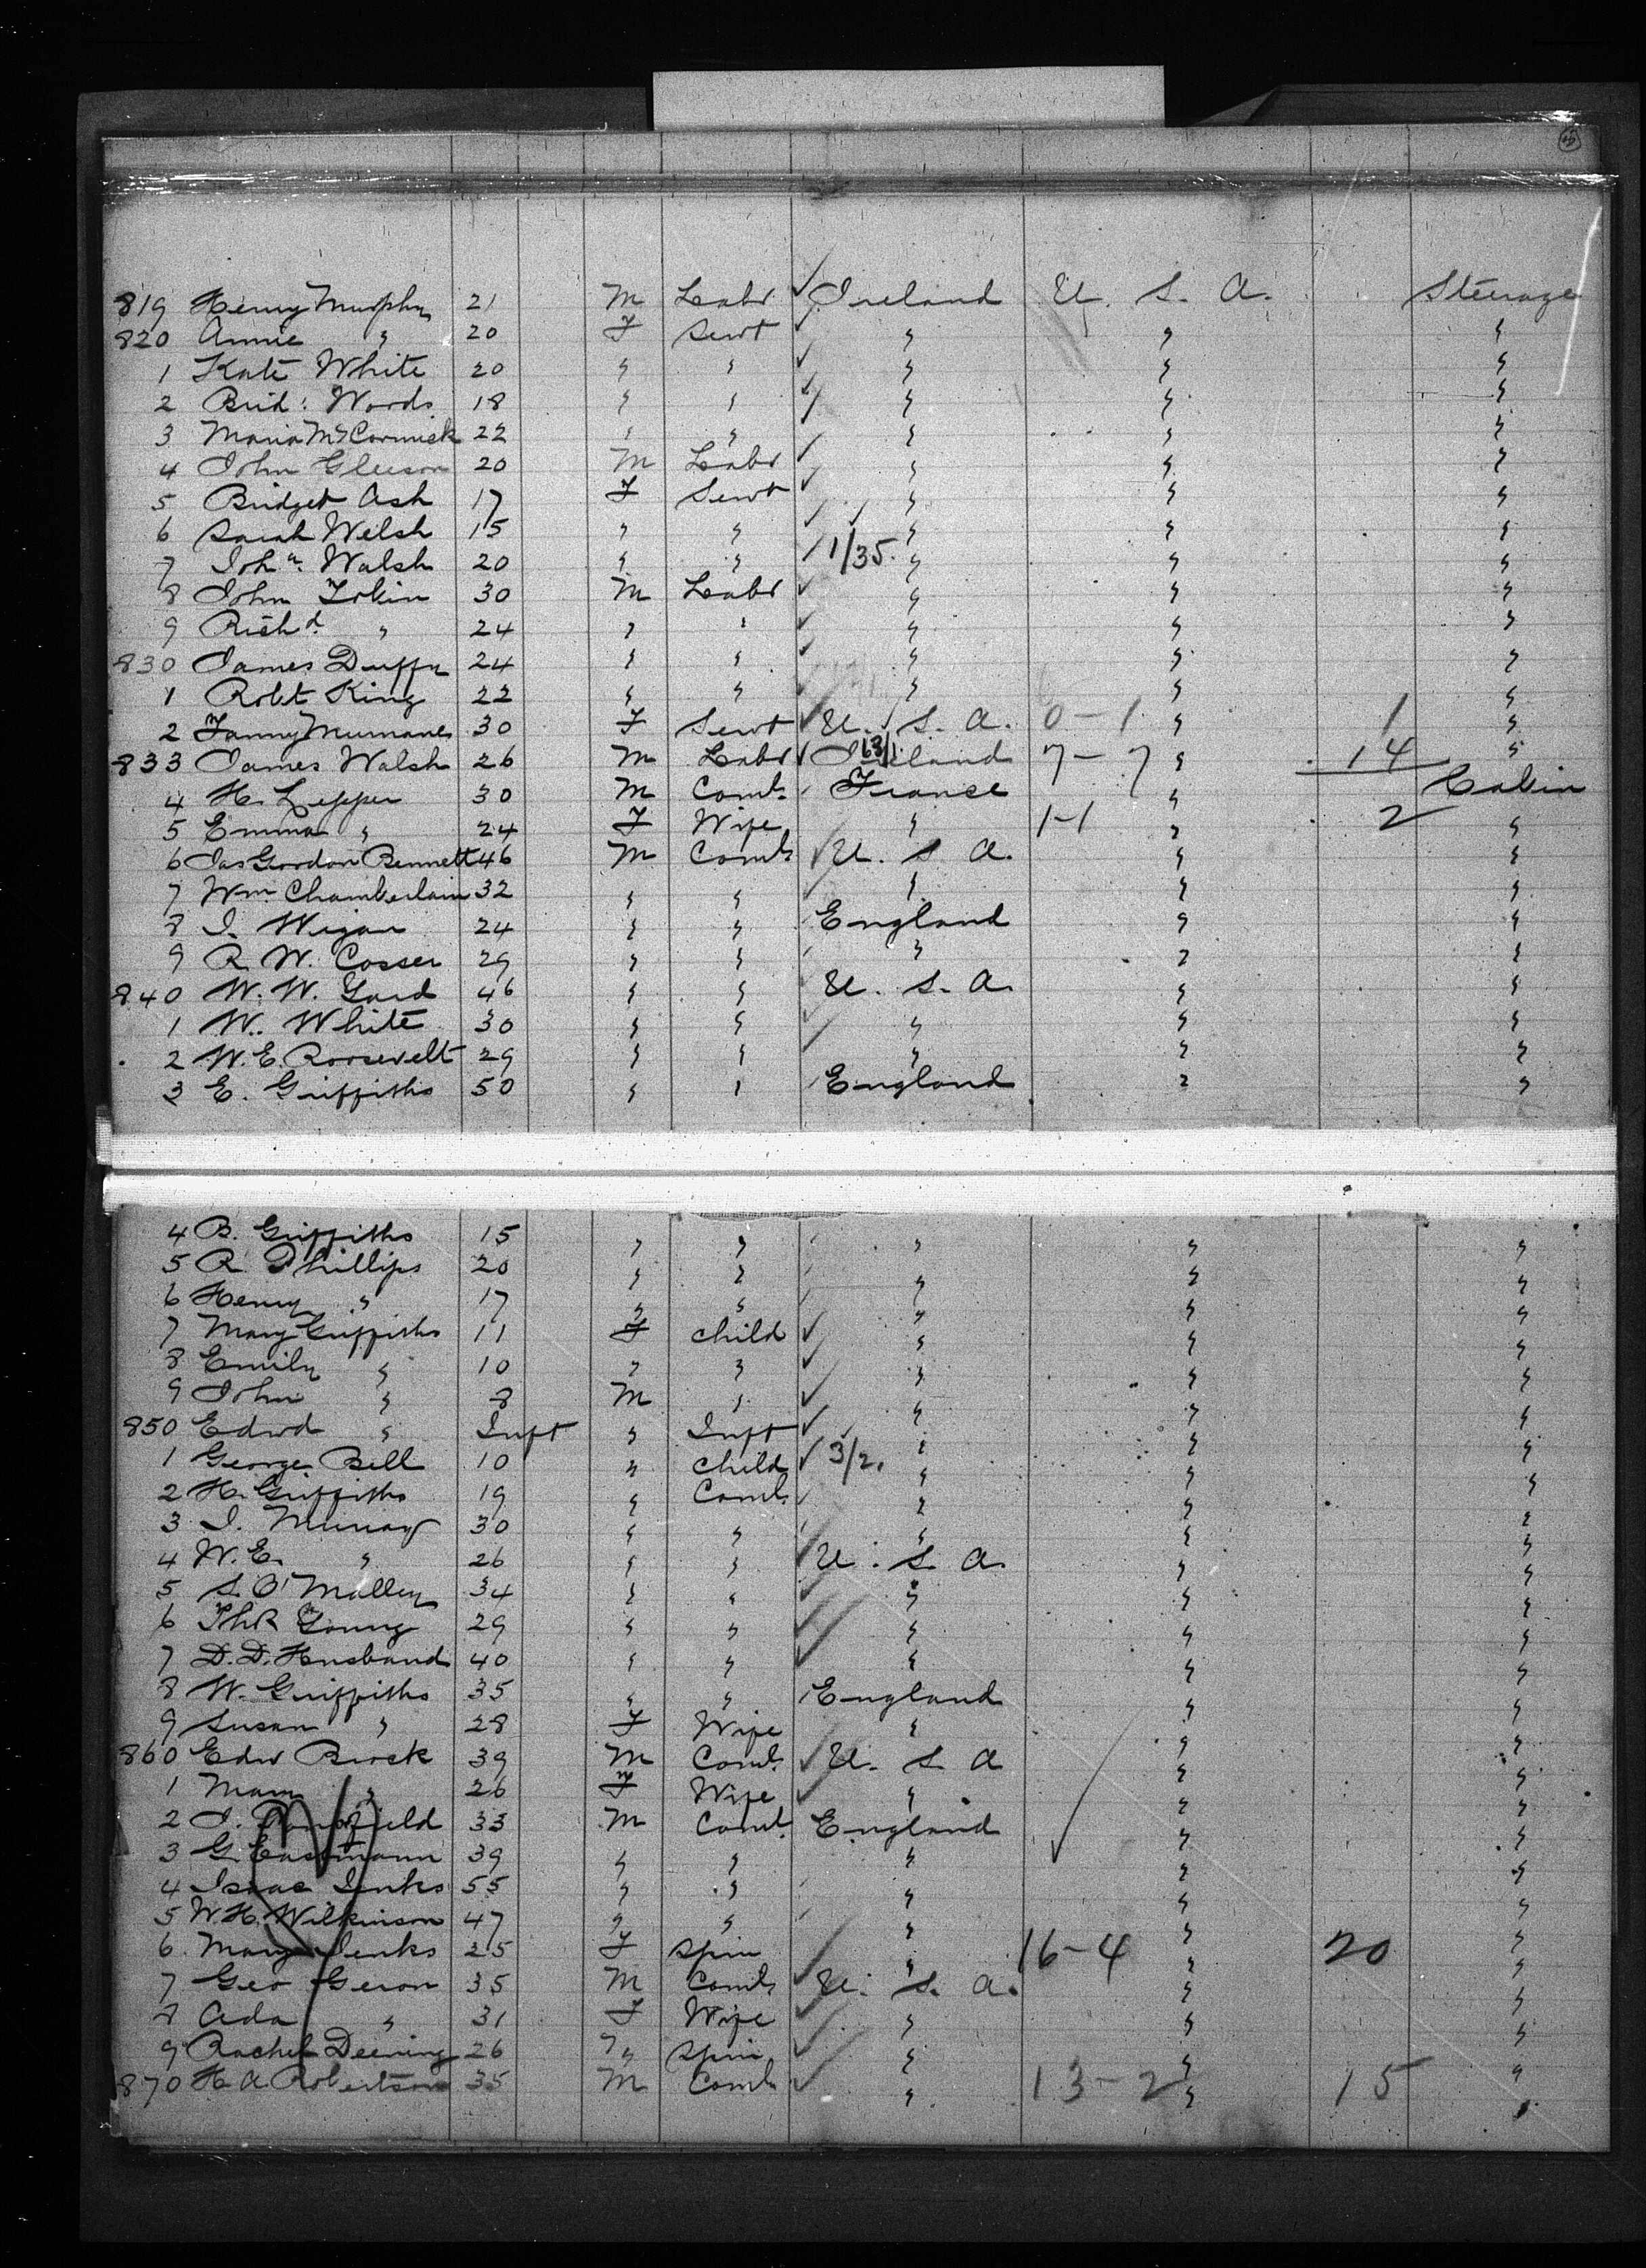 819 Henry Murphy 21 M Labr Ireland U. S. A. Steerage
820 Annie " 20 F Servt " " "
1 Kate White 20 " " " " "
2 Brid: Woods 18 " " " " "
3 Maria McCormick 22 " " " " "
4 John Gleeson 20 M Labr " " "
5 Bridget Ash 17 F Servt " " "
6 Sarah Welsh 15 " " " " "
7 Joha. Walsh 20 " " 1/35. " " "
8 John Tobin 30 M Labr " " "
9 Richd. " 24 " " " " "
830 James Duffy 24 " " " " "
1 Robt King 22 " " " " "
2 Fanny Murnane 30 F Servt U. S. A. 0-1 " 1 "
833 James Walsh 26 M Labr Ireland 7-7 " 14 "
4 H. Lepper 30 M Coml. France " Cabin
5 Emma " 24 F Wife " 1-1 " 2 "
6 Jas Gordon Bennett 46 M Coml. U. S. A. " "
7 Wm. Chamberlain 32 " " " " "
8 J. Wigan 24 " " England " "
9 R. W. Cosser 29 " " " " "
840 W. W. Gard 46 " " U. S. A. " "
1 W. White 30 " " " " "
2 W. E. Roosevelt 29 " " " " "
3 E. Griffiths 50 " " England " "
4 B. Griffiths 15 " " " " "
5 R. Phillips 20 " " " " "
6 Henry " 17 " " " " "
7 Mary Griffiths 11 F Child " " "
8 Emily " 10 " " " " "
9 John " 8 M " " " "
850 Edwd " Inft " Inft " " "
1 George Bell 10 " Child 3/2. " " "
2 H. Griffiths 19 " Coml. " " "
3 J. Murray 30 " " " " "
4 W. E. " 26 " " U. S. A. " "
5 S. O'Malley 34 " " " " "
6 Young 29 " " " " "
7 D. D. Husband 40 " " " " "
8 W. Griffiths 35 " " England " "
9 Susan " 28 F Wife " " "
860 Edw Brock 39 M Coml. U. S. A " "
1 Mary " 26 F Wife " " "
2 J. 33 M Coml. England " "
3 G. Eastmann 39 " " " " "
4 Isaac Jenks 55 " " " " "
5 W. H. Wilkinson 47 " " " " "
6 Mary Jenks 25 F Spin " 16-4 " 20 "
7 Geo Geron 35 M Coml. U. S. A. " "
8 Ada " 31 F Wife " " "
9 Rachel Deering 26 " Spin " " "
870 H A Robertson 35 M Coml. " 13-2 " 15 "